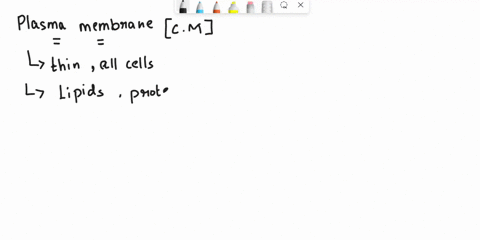 Plasma membrane [C.M]
↳ thin, all cells
↳ Lipids, prot